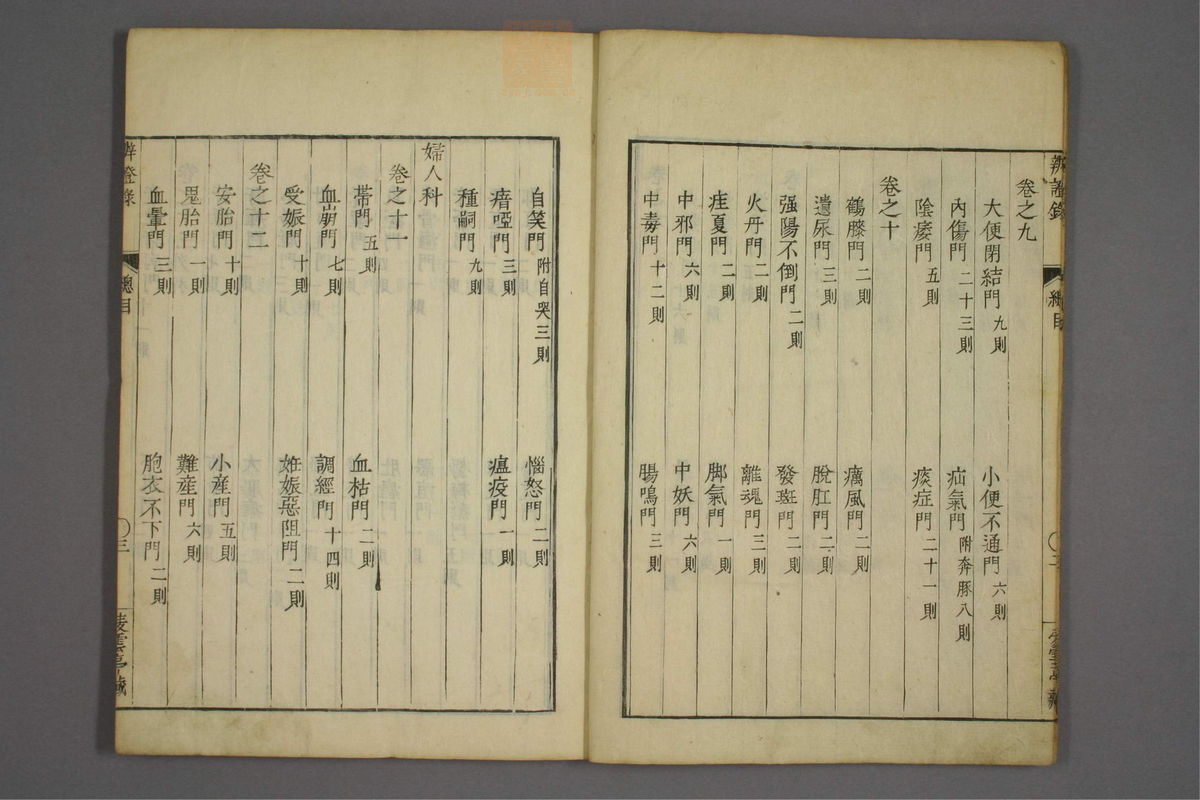 卷之九
大便閉結門九則
小便不通門六則
內傷門二十三則
疝氣門附奔豚八則
陰痿門五則
痰症門二十一則
卷之十
鶴膝門二則
癘風門二則
遺尿門三則
脫肛門二則
强陽不倒門二則
發斑門二則
火丹門二則
離魂門三則
疰夏門二則
脚氣門一則
中邪門六則
中妖門六則
中毒門十二則
腸鳴門三則
自笑門附自哭三則
惱怒門二則
瘖啞門三則
瘟疫門一則
種嗣門九則
婦人科
卷之十一
帶門五則
血枯門二則
血崩門七則
調經門十四則
受娠門十則
姙娠惡阻門二則
卷之十二
安胎門十則
小產門五則
鬼胎門一則
難產門六則
血暈門三則
胞衣不下門二則
辨證錄
總目
三